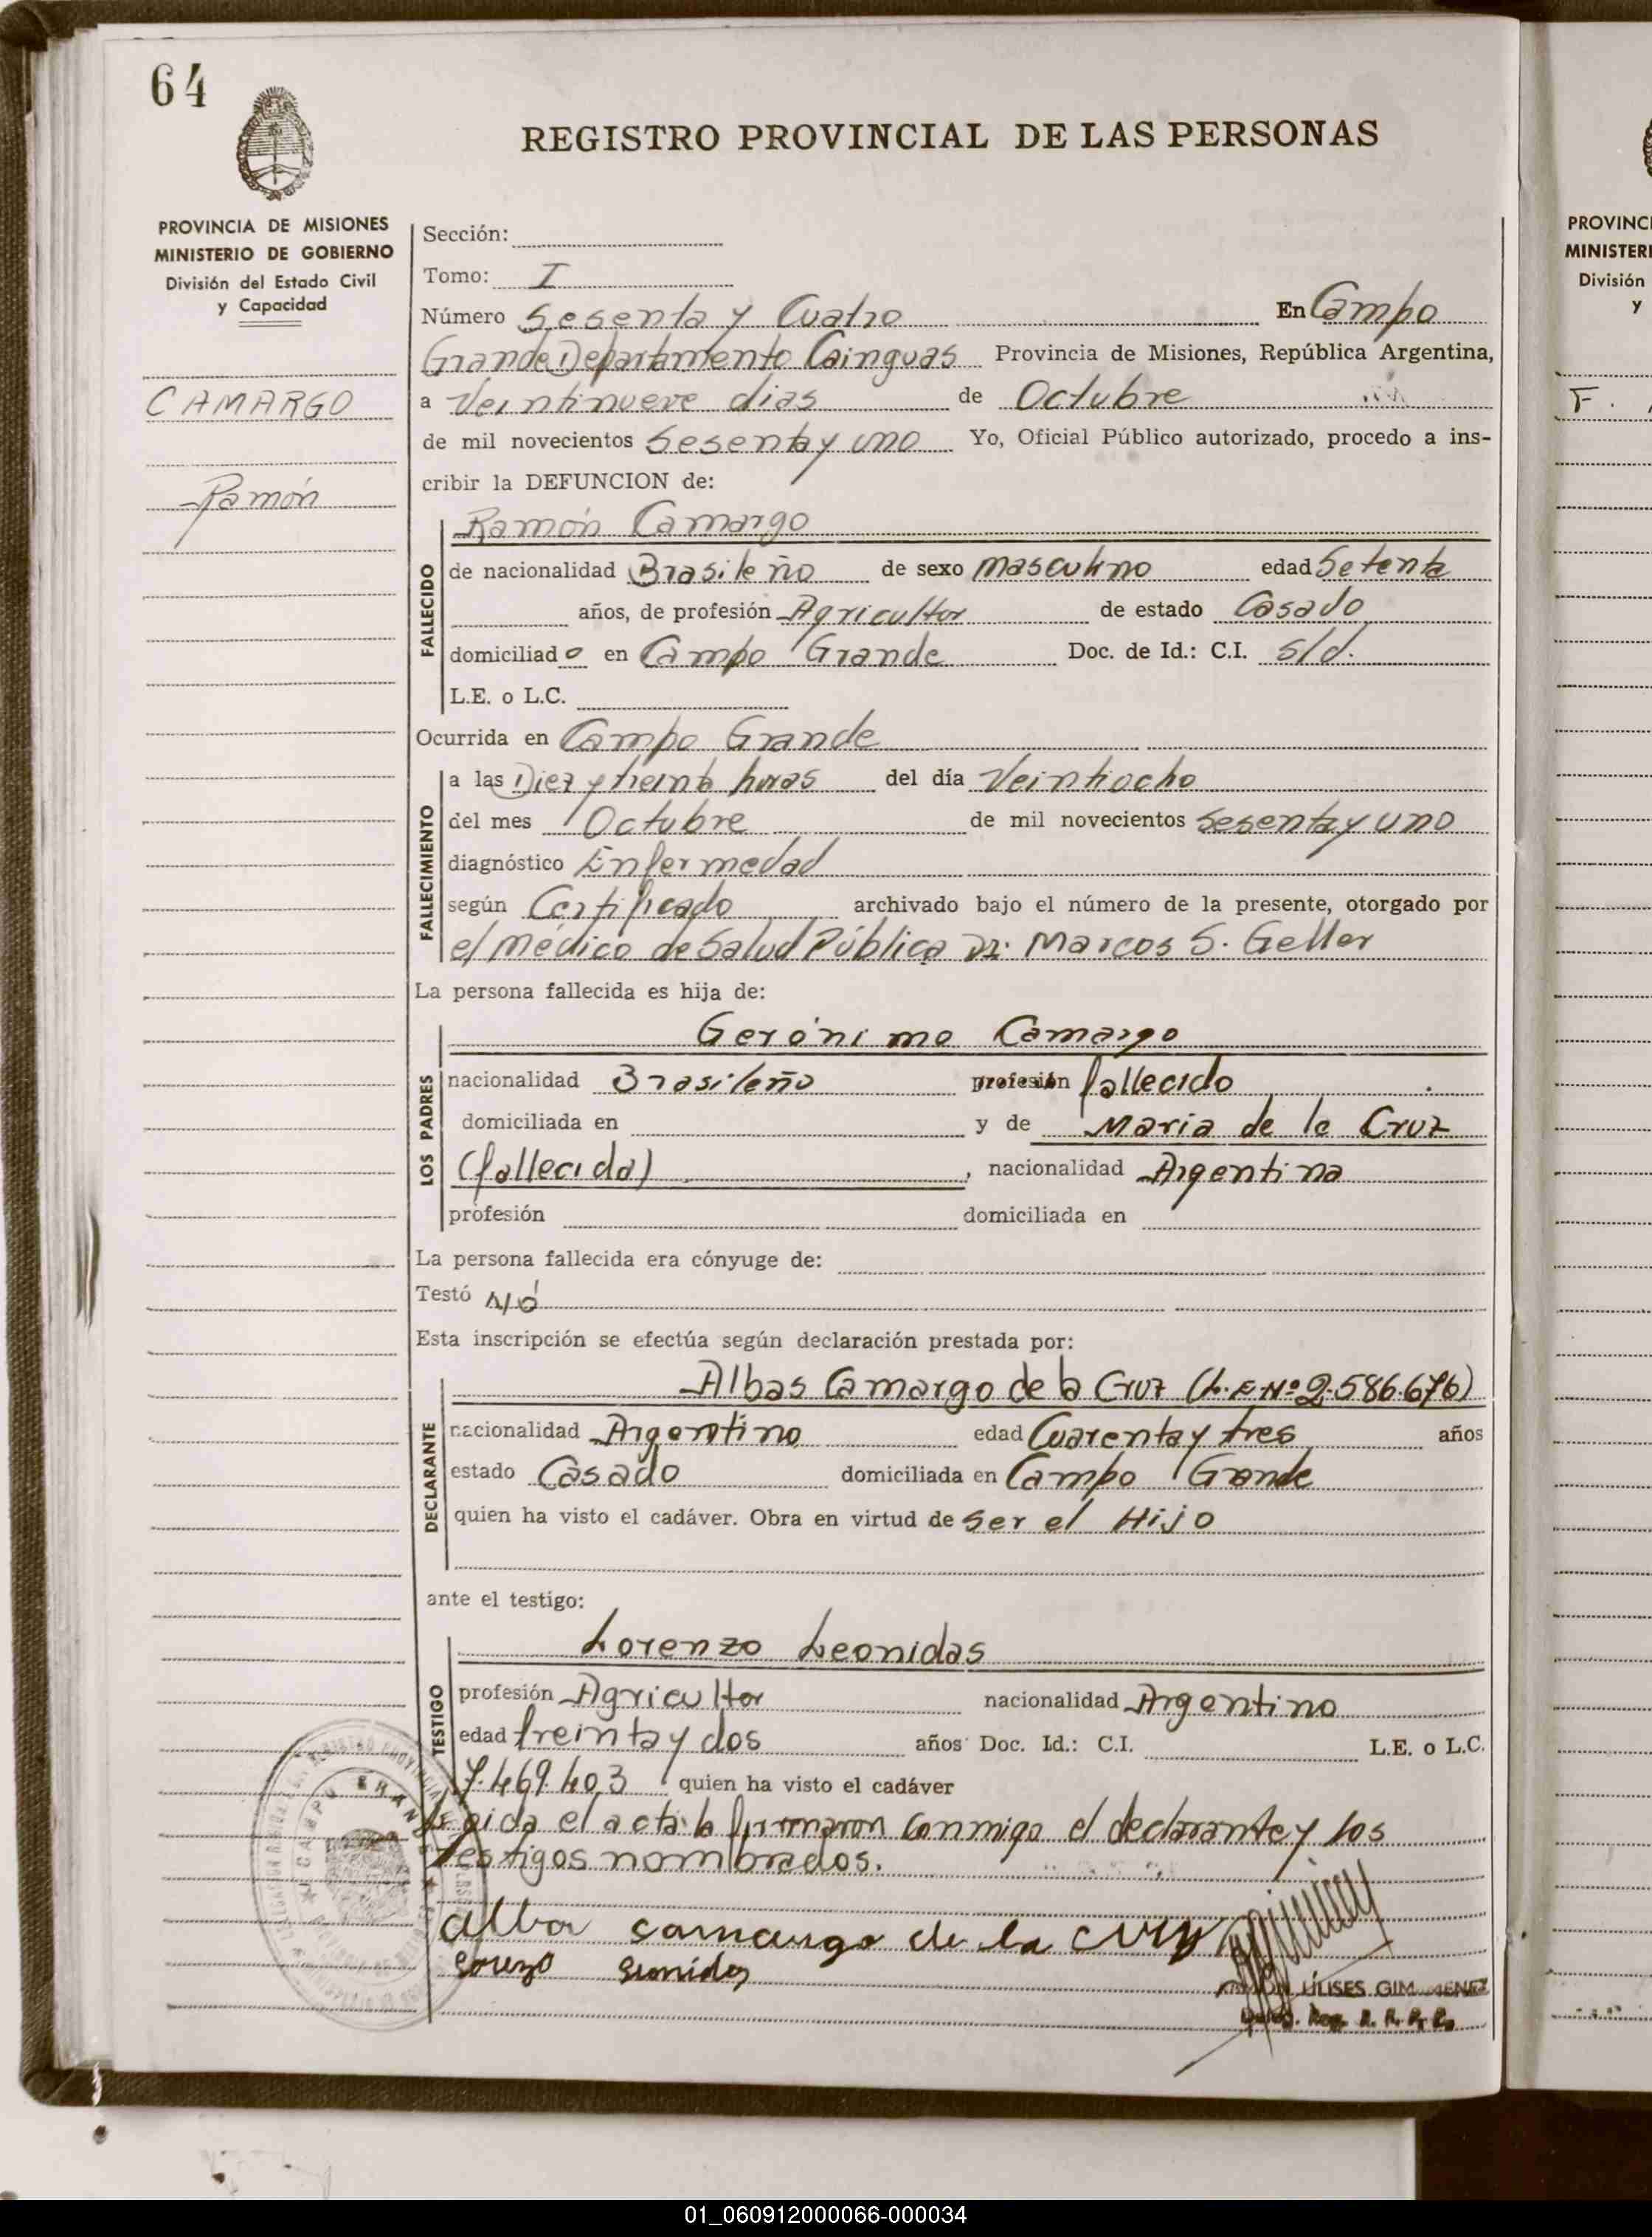 64
REGISTRO PROVINCIAL DE LAS PERSONAS
PROVINCIA DE MISIONES
MINISTERIO DE GOBIERNO
División del Estado Civil
y Capacidad
CAMARGO
Ramón
Sección:
Tomo: I
Número Sesenta y Cuatro En Campo
Grande Departamento Cainguas Provincia de Misiones, República Argentina,
a Veintinueve dias de Octubre
de mil novecientos Sesenta y uno Yo, Oficial Público autorizado, procedo a ins-
cribir la DEFUNCION de:
FALLECIDO
Ramón Camargo
de nacionalidad Brasileño de sexo masculino edad Setenta
años, de profesión Agricultor de estado Casado
domiciliado en Campo Grande Doc. de Id.: C.I. s/d.
L.E. o L.C.
Ocurrida en Campo Grande
FALLECIMIENTO
a las Diez y treinta horas del día Veintiocho
del mes Octubre de mil novecientos Sesenta y uno
diagnóstico Enfermedad
según Certificado archivado bajo el número de la presente, otorgado por
el médico de Salud Pública Dr. Marcos S. Geller
La persona fallecida es hija de:
LOS PADRES
Gerónimo Camargo
nacionalidad Brasileño profesión fallecido
domiciliada en y de Maria de la Cruz
(fallecida), nacionalidad Argentina
profesión domiciliada en
La persona fallecida era cónyuge de:
Testó Nó
Esta inscripción se efectúa según declaración prestada por:
DECLARANTE
Albas Camargo de la Cruz (L.E Nº 2.586.676)
nacionalidad Argentino edad Cuarenta y tres años
estado Casado domiciliada en Campo Grande
quien ha visto el cadáver. Obra en virtud de ser el Hijo
ante el testigo:
TESTIGO
Lorenzo Leonidas
profesión Agricultor nacionalidad Argentino
edad treinta y dos años Doc. Id.: C.I. L.E. o L.C.
7.469.403 quien ha visto el cadáver
Leida el acta la firmaron conmigo el declarante y los
testigos nombrados.
Alba camargo de la cruz
Lorenzo Leonidas
RAMÓN ULISES GIMENEZ
CAMPO GRANDE
PROVINC
MINISTERI
División
y
F.
01_060912000066-000034